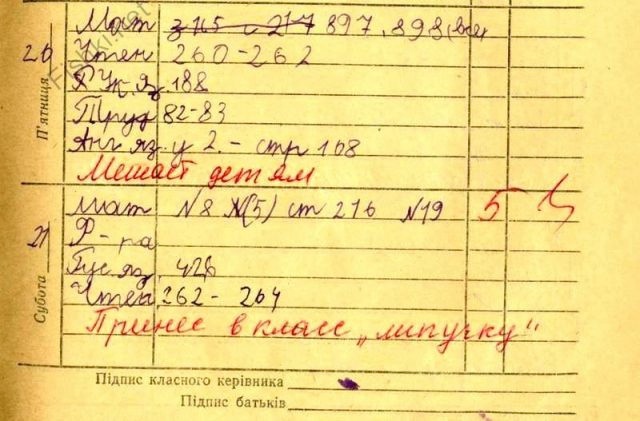 Мат з 115 с 217 897, 898 (все)
26 Чтен 260-262
П'ятниця
Р Уж. Яз. 188
Труд 82-83
Анг яз. у 2. - стр 168
Мешает детям
Мат №8 №(5) ст 216 №19 5
21 Ф-ра
Субота
Рус яз. 426
Чтен 262-264
Принес в класс „липучку"
Підпис класного керівника
Підпис батьків
Fishki.net